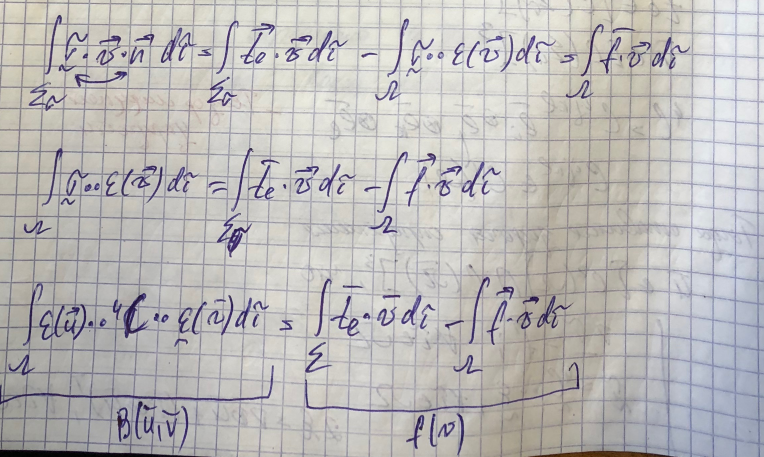 ∫_{Σ_σ} σ̃·v⃗·n⃗ dτ̃ = ∫_{Σ_σ} t⃗e·v⃗ dτ̃ − ∫_Ω σ̃··ε(v⃗) dτ̃ = ∫_Ω f̄·v⃗ dτ̃
∫_Ω σ̃··ε(v⃗) dτ̃ = ∫_{Σ_σ} t̄e·v⃗ dτ̃ − ∫_Ω f⃗·v⃗ dτ̃
∫_Ω ε(u⃗)··⁴C··ε(v̄) dτ̃ = ∫_Σ t̄e·v̄ dτ̃ − ∫_Ω f⃗·v⃗ dτ̃
B(ū,v̄) f(v)